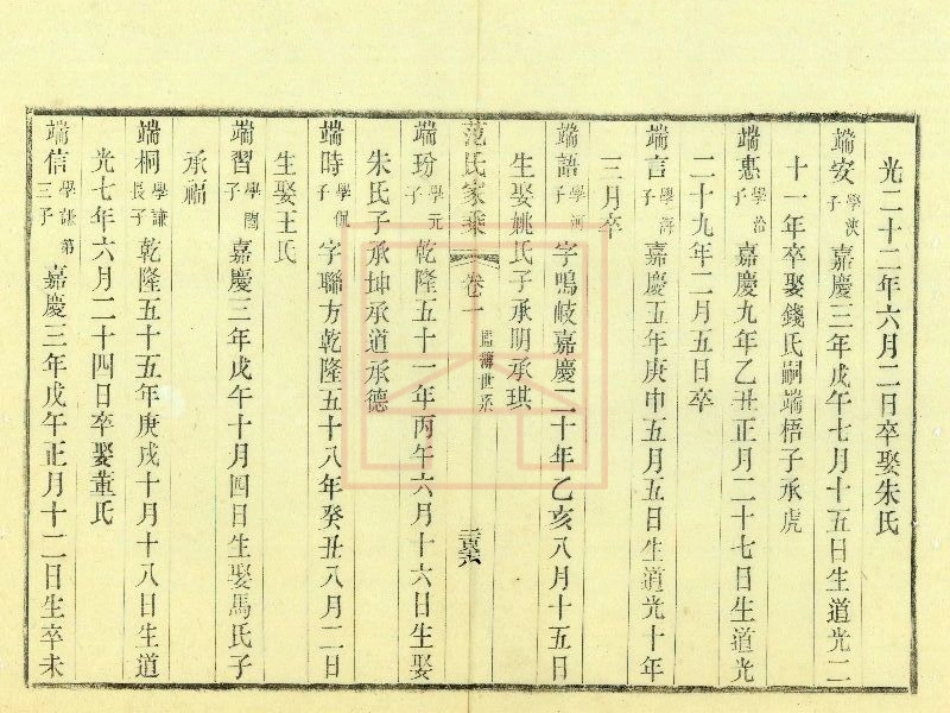 光二十二年六月二日卒娶朱氏
端安學洢子嘉慶三年戊午七月十五日生道光二
十一年卒娶錢氏嗣端梧子承虎
端惠學治子嘉慶九年乙丑正月二十七日生道光
二十九年二月五日卒
端言學海子嘉慶五年庚申五月五日生道光十年
三月卒
端語學河子字鳴岐嘉慶二十年乙亥八月十五日
生娶姚氏子承明承琪
范氏家乘
卷一
世系
端玢學元子乾隆五十一年丙午六月十六日生娶
朱氏子承坤承道承德
端時學侃子字聯方乾隆五十八年癸丑八月二日
生娶王氏
端習學閭子嘉慶三年戊午十月四日生娶馬氏子
承福
端桐學謙長子乾隆五十五年庚戌十月十八日生道
光七年六月二十四日卒娶董氏
端信學謙第三子嘉慶三年戊午正月十二日生卒未